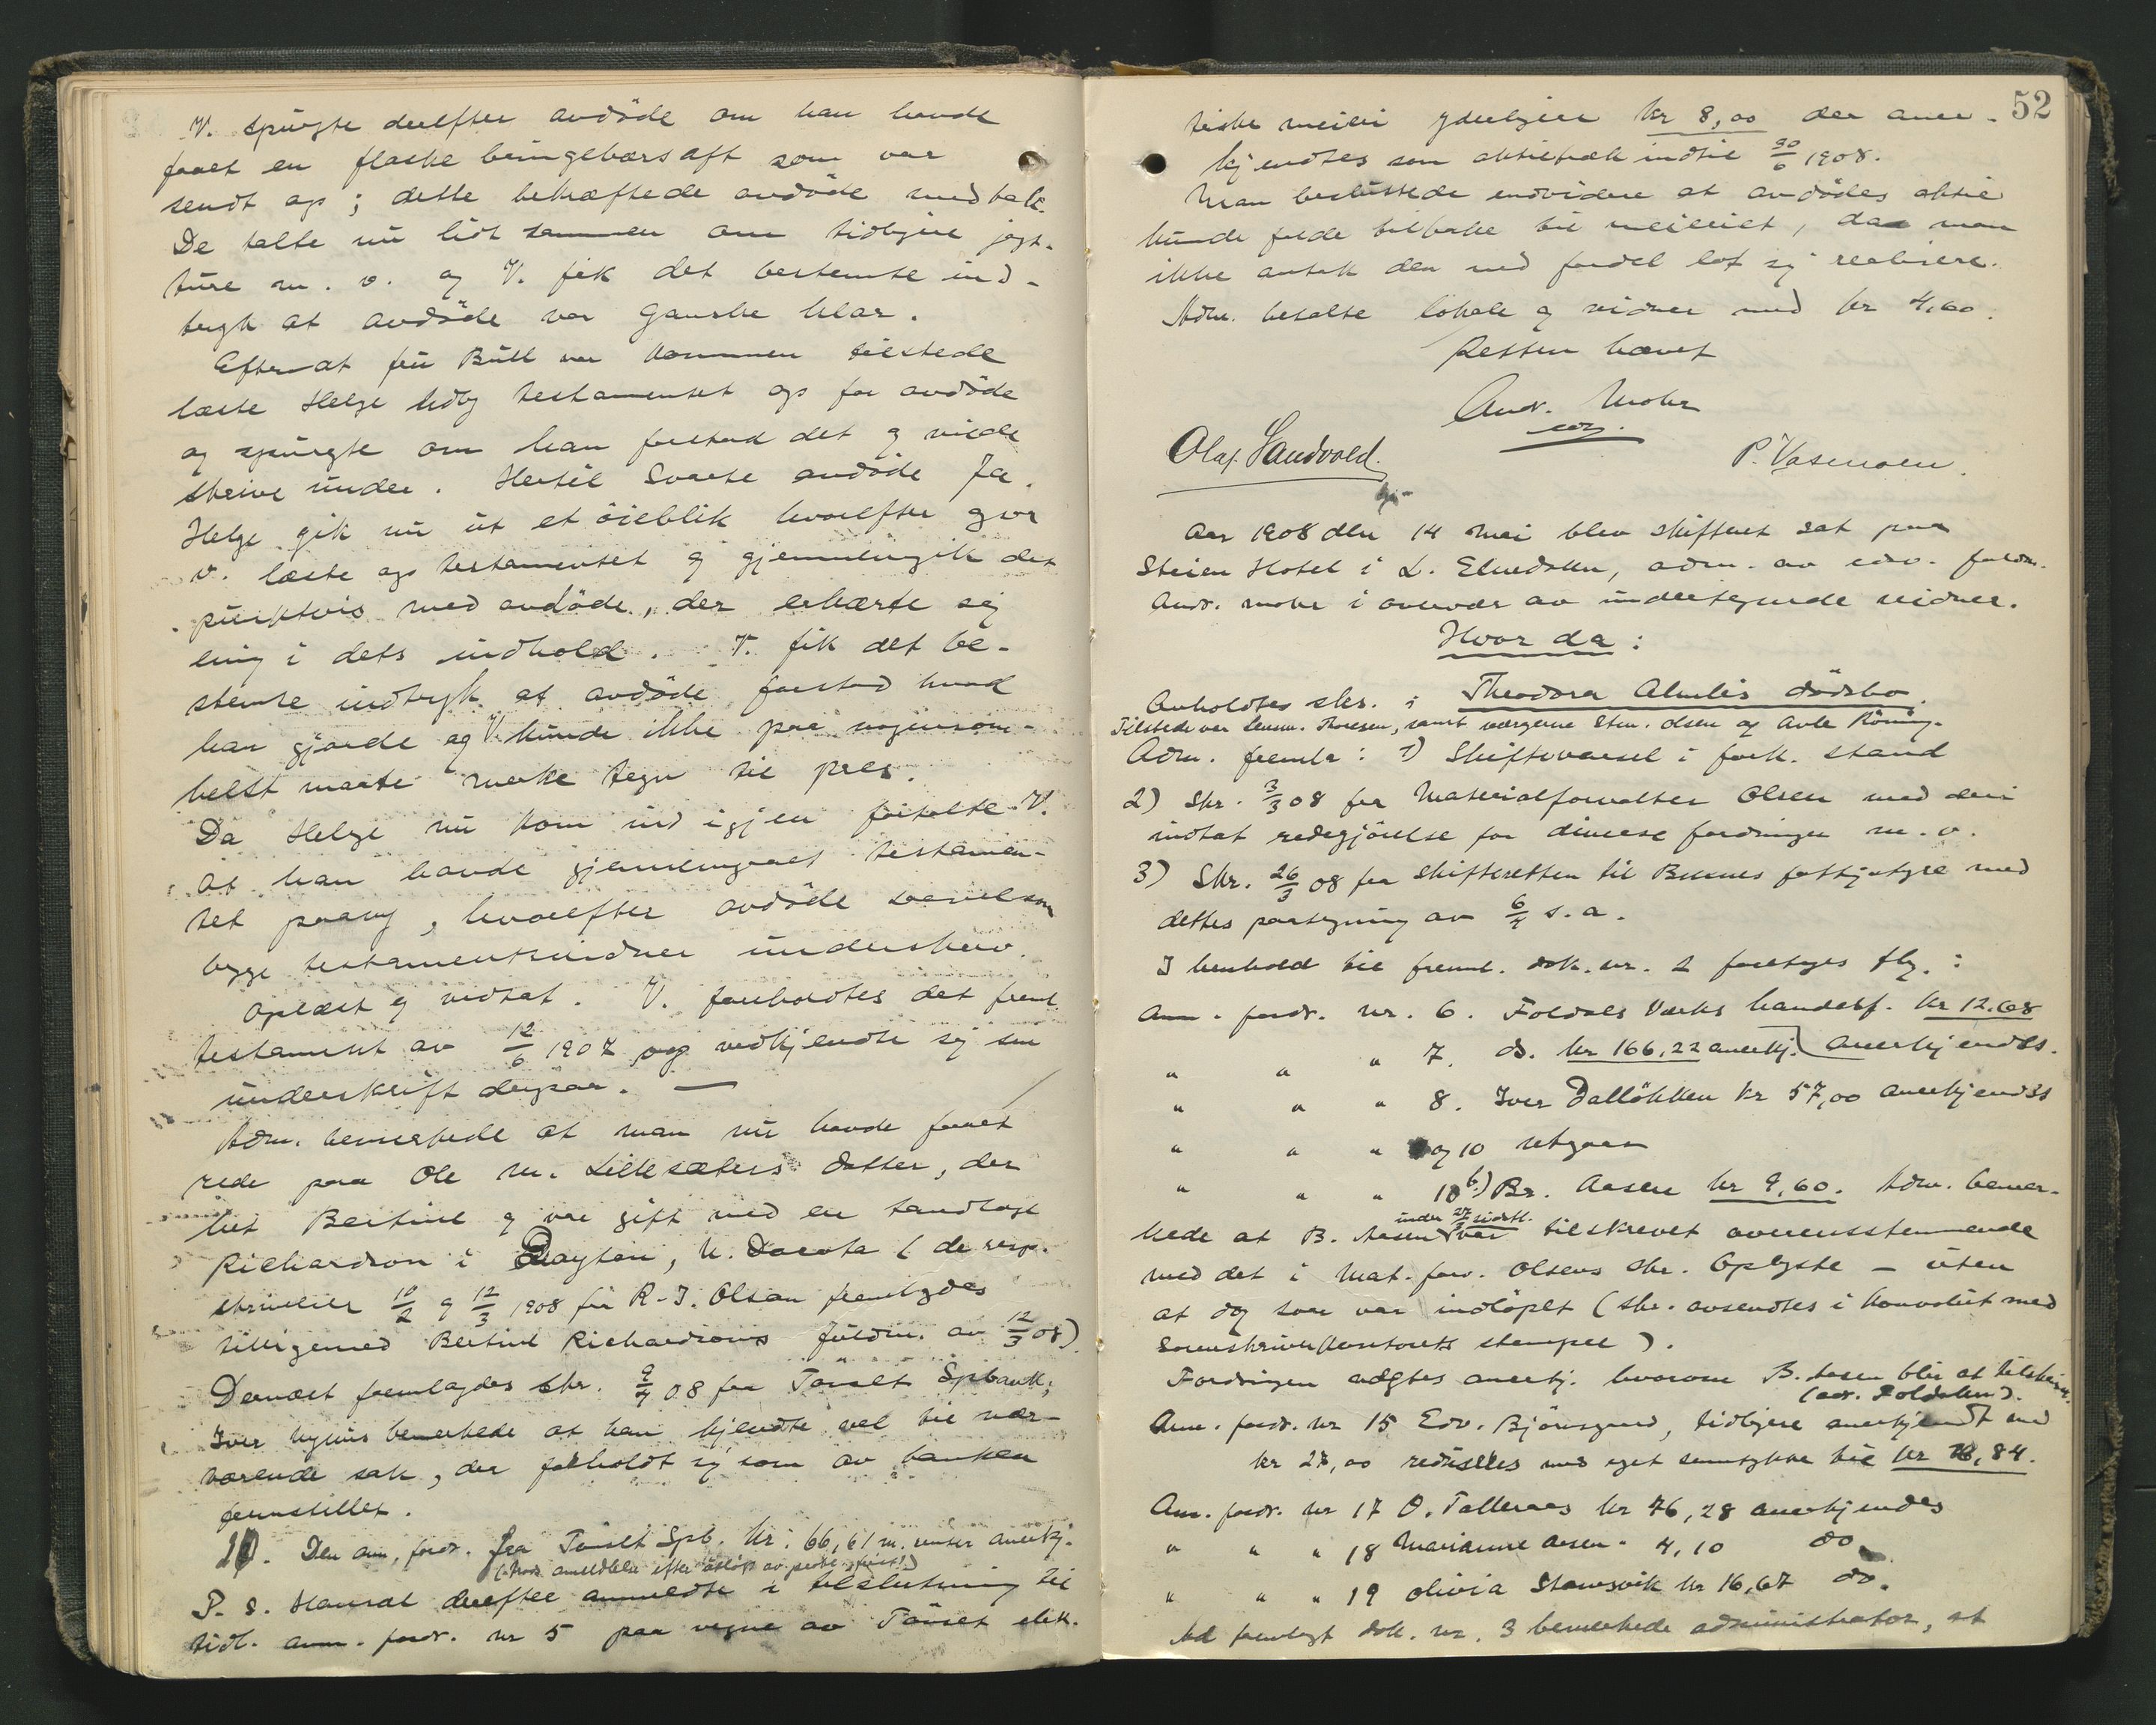 V. spurgte derefter avdöde om han hadde
faaet en flaske bringebærsaft som var
sendt op; dette bekræftede avdöde med tak.
De talte nu lidt sammen om tidligere jagt-
ture m. v. og V. fik det bestemte ind-
tryk at avdöde var ganske klar.
Efterat fru Bull var kommen tilstede
læste Helge testamentet op for avdöde
og spurgte om han forstod det og vilde
skrive under. Hertil svarte avdöde Ja.
Helge gik nu ut et öieblik hvorefter
v. læste op testamentet og gjennemgik det
punktvis med avdöde, der erklærte sig
enig i dets indhold. V. fik det be-
stemte indtryk at avdöde forstod hvad
han gjorde og V. kunde ikke paa nogensom-
helst maate merke tegn til pres.
Da Helge nu kom ind igjen fortalte V.
at han havde gjennemgaaet testamen-
tet paany, hvorefter avdöde saavelsom
begge testamentsvidner underskrev.
Oplæst og vedtat. V. foreholdtes det freml.
testament av 12/6 1907 og vedkjendte sig sin
underskrift derpaa. —
Adm. bemerkede at man nu havde faaet
rede paa Ole M. Lillesæters datter, der
het Bertine og var gift med en tandlæge
Richardson i Drayton, N. Dacota (de resp.
skrivelser 10/2 og 12/3 1908 fra R. J. Olson fremlagdes
tilligemed Bertine Richardsons fuldm. av 12/3 08)
Dernæst fremlagdes skr. 9/4 08 fra Tönset Spbank;
Iver bemerkede at han kjendte vel til nær-
værende sak, der forholdt sig som av banken
fremstillet.
Den anm. fordr. fra Tönset Spb. kr. 66,61 m. renter anerkj.
(Mod. anmeldelse efter utlöp av procl. frist!)
P. S. derefter anmeldte i tilslutning til
tidl. anm. fordr. nr 5 paa vegne av Tönset elek-
52
triske meieri yderligere kr 8,00 der aner-
kjendtes som indtil 30/6 1908.
Man besluttede endvidere at avdödes aktie
kunde falde tilbake til meieriet, da man
ikke antok den med fordel lot sig realisere.
Adm. betalte lokale og vidner med kr 4,60.
Retten hævet
Andr. Mohr
Olaf Sandvold. P. Vasmoen.
Aar 1908 den 14 mai blev skifteret sat paa
Steien Hotel i L. Elvedalen, adm. av edsv. fuldm.
Andr. Mohr i overvær av undertegnede vidner.
Hvor da:
Anholdtes skr. i Theodora Almlis dödsbo.
Tilstede var lensm. Thoresen, samt værgerne Stm. Olsen og Avle Röning.
Adm. fremla: 1) Skiftevarsel i fork. stand
2) Skr. 3/3 08 fra Materialforvalter Olsen med deri
indtat redegjörelse for diverse fordringer m. v.
3) Skr. 26/3 08 fra skifteretten til fattigstyre med
dettes paategning av 6/4 s. a.
I henhold til freml. dok. nr. 2 foretoges flg.:
Anm. fordr. nr. 6. Foldals Værks handelsf. kr 12.68
" " " 7. do. kr 166,22 anerkj. anerkjendes.
" " " 8. Iver Dallökken kr 57,00 anerkjendes
" " " og 10 utgaar
" " " 10 b) Br. Aasen kr 9,60. Adm. bemer-
kede at B. Aasen under 27/3 sidstl. var tilskrevet overensstemmende
med det i Mat. forv. Olsens skr. oplyste – uten
at dog svar var indlöpet (skr. avsendtes i konvolut med
Sorenskriverkontorets stempel).
Fordringen nægtes anerkj. hvorom B. Aasen blir at tilskrive.
(adr. Foldalen).
Anm. fordr. nr 15 Edv. Björnsgaard, tidligere anerkjendt med
kr 27,00 reduseres med eget samtykke til kr ,84.
Anm. fordr. nr 17 O. Talleraas kr 76,28 anerkjendes
" " " 18 Marianne Aasen - 4,10 do.
" " " 19 Olivia Stamsvik kr 16,67 do.
Ad fremlagt dok. nr. 3 bemerkede administrator, at